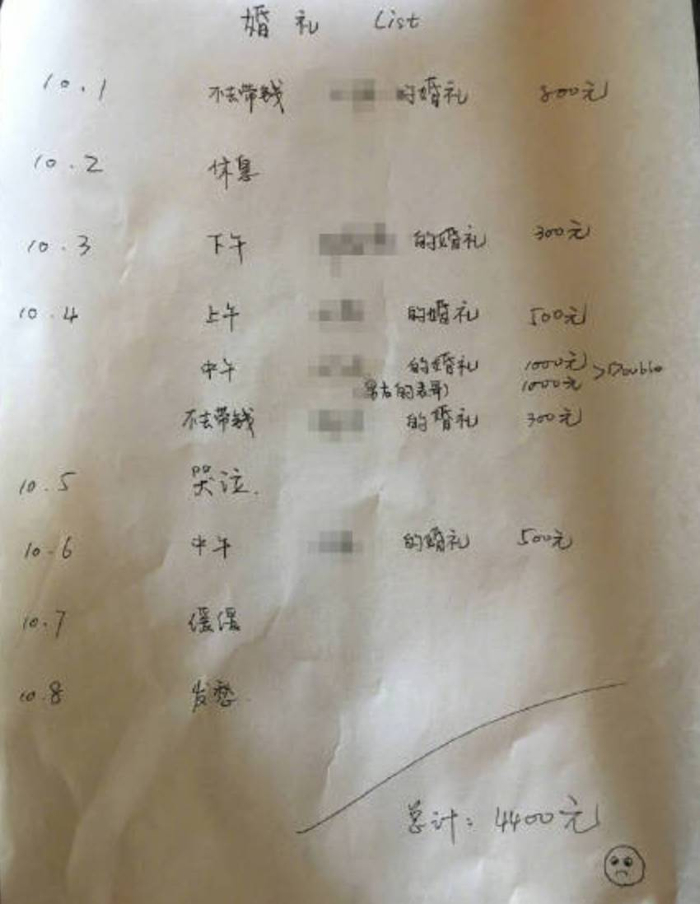 婚礼 List
10.1 不去带钱 的婚礼 800元
10.2 休息
10.3 下午 的婚礼 300元
10.4 上午 的婚礼 500元
中午 的婚礼 1000元
的表哥) 1000元 >Double
不去带钱 的婚礼 300元
10.5 哭泣.
10.6 中午 的婚礼 500元
10.7 缓缓
10.8 发愁.
总计: 4400元